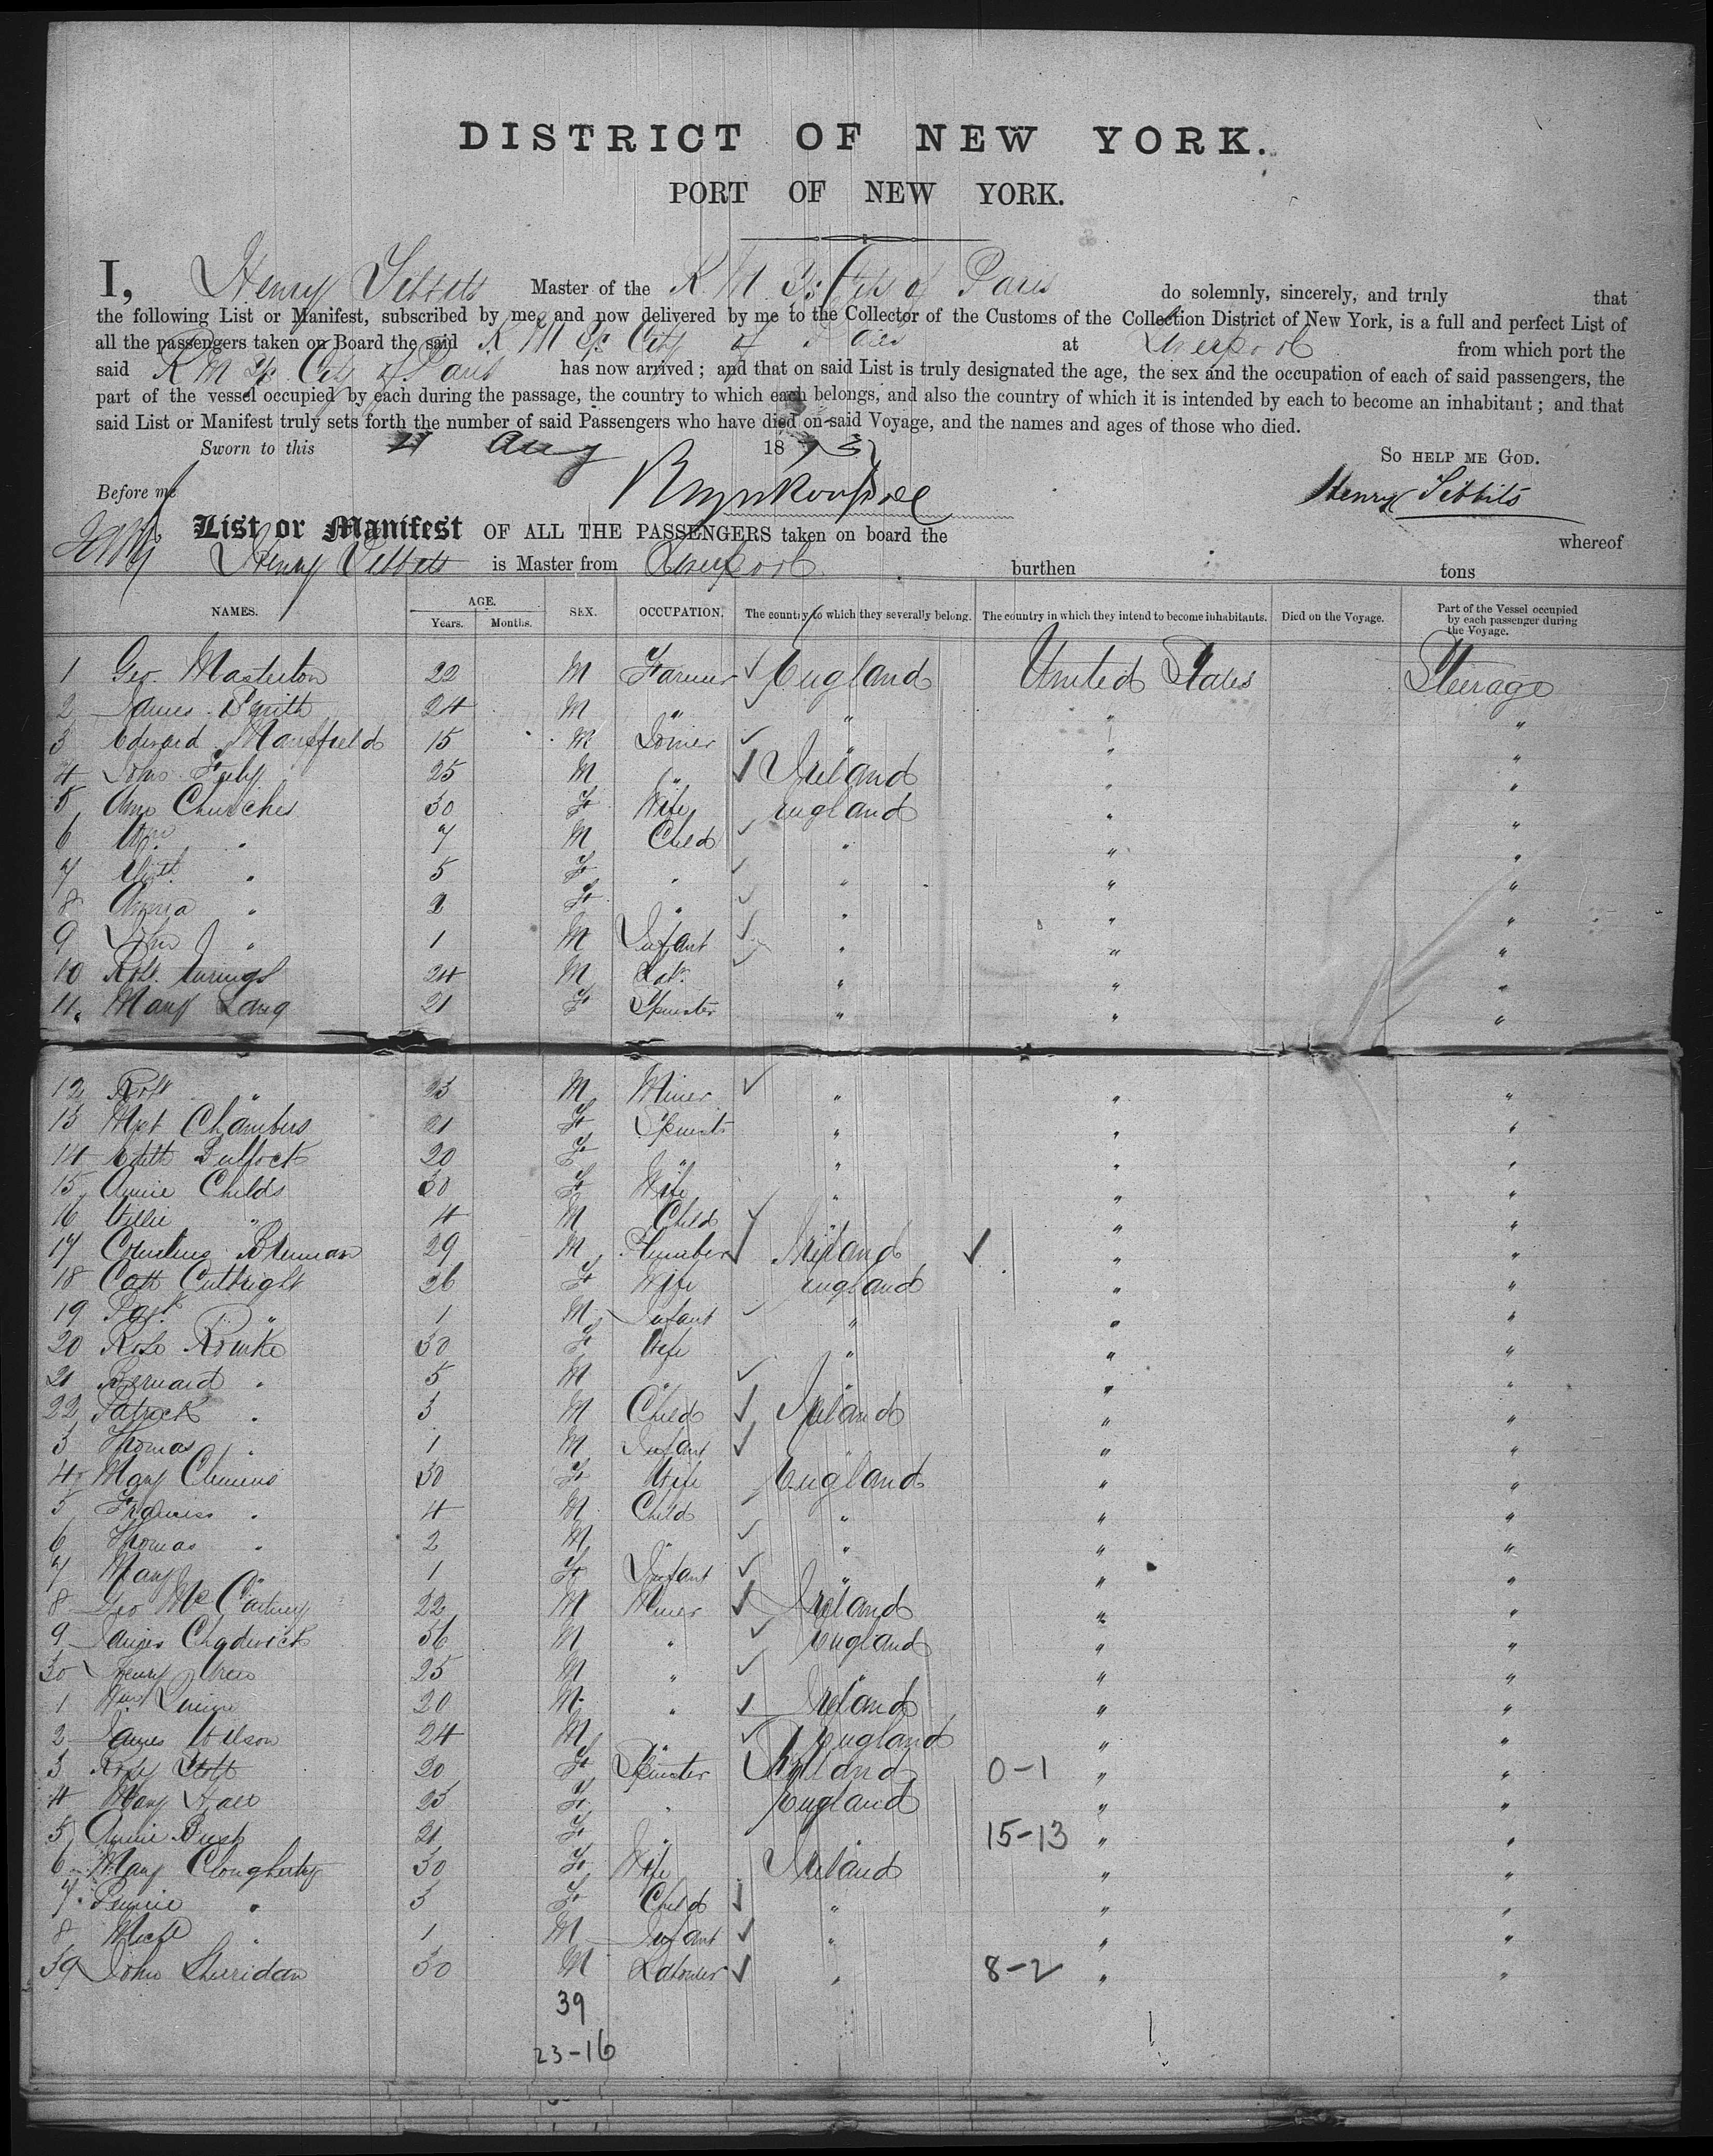 DISTRICT OF NEW YORK.
PORT OF NEW YORK.
I, Henry Tibbits Master of the R.M.S. City of Paris do solemnly, sincerely, and truly that
the following List or Manifest, subscribed by me, and now delivered by me to the Collector of the Customs of the Collection District of New York, is a full and perfect List of
all the passengers taken on Board the said R M S City of Paris at Liverpool from which port the
said R M S City of Paris has now arrived; and that on said List is truly designated the age, the sex and the occupation of each of said passengers, the
part of the vessel occupied by each during the passage, the country to which each belongs, and also the country of which it is intended by each to become an inhabitant; and that
said List or Manifest truly sets forth the number of said Passengers who have died on said Voyage, and the names and ages of those who died.
Sworn to this 21 Aug 1873 So help me God.
Before me Henry Tibbits
List or Manifest OF ALL THE PASSENGERS taken on board the whereof
Henry Tibbits is Master from Liverpool burthen tons
NAMES. AGE. Years. Months. SEX. OCCUPATION. The country to which they severally belong. The country in which they intend to become inhabitants. Died on the Voyage. Part of the Vessel occupied by each passenger during the Voyage.
1 Geo. Masterton 22 M Farmer England United States Steerage
2 James Smith 24 M " " " "
3 Edward Mansfield 15 M Joiner " " "
4 John 25 M " Ireland " "
5 Ann Churches 30 F Wife England " "
6 Wm " 7 M Child " " "
7 Elizth " 5 F " " " "
8 Annia " 2 F " " " "
9 John " 1 M Infant " " "
10 Robt 24 M Lab. " " "
11 Mary Lang 21 F Spinster " " "
12 Robt " 23 M Miner " " "
13 Mgt Chambers 21 F Spinst " " "
14 Edith Bullock 20 F " " " "
15 Annie Childs 30 F Wife " " "
16 Willie " 4 M Child " " "
17 Cornelius Brennan 29 M Plumber Ireland " "
18 Cath Cutbright 26 F Wife England " "
19 Patk " 1 M Infant " " "
20 Rose Rourke 30 F Wife " " "
21 Bernard " 5 M " " " "
22 Patrick " 3 M Child Ireland " "
3 Thomas " 1 M Infant " " "
4 Mary Clemens 30 F Wife England " "
5 Francis " 4 M Child " " "
6 Thomas " 2 M " " " "
7 Mary " 1 F Infant " " "
8 Geo McCartney 22 M Miner Ireland " "
9 James Chadwick 36 M " England " "
30 Henry 25 M " " " "
1 Wm Quinn 20 M " Ireland " "
2 James Wilson 24 M " England " "
3 Rose Stott 20 F Spinster 0-1 " "
4 Mary Hall 23 F " England " "
5 Annie Bush 21 F " " 15-13 " "
6 Mary Clougherty 30 F Wife Ireland " "
7 Pennie " 3 F Child " " "
8 Michl " 1 M Infant " " "
39 John Sherridan 30 M Labourer " 8-2 " "
39
23-16